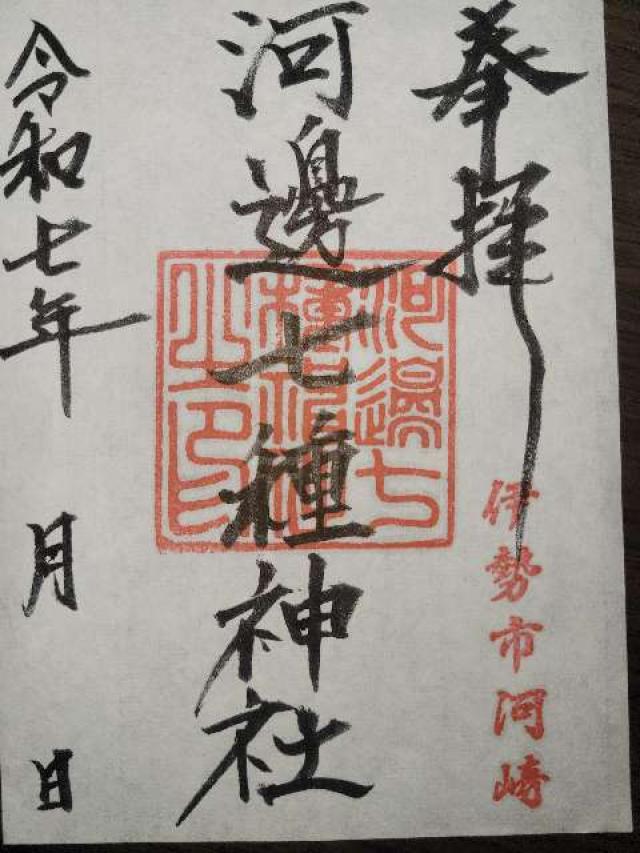 奉拝
伊勢市河崎
河邊七種神社
河邊七種神社之印
令和七年 月 日